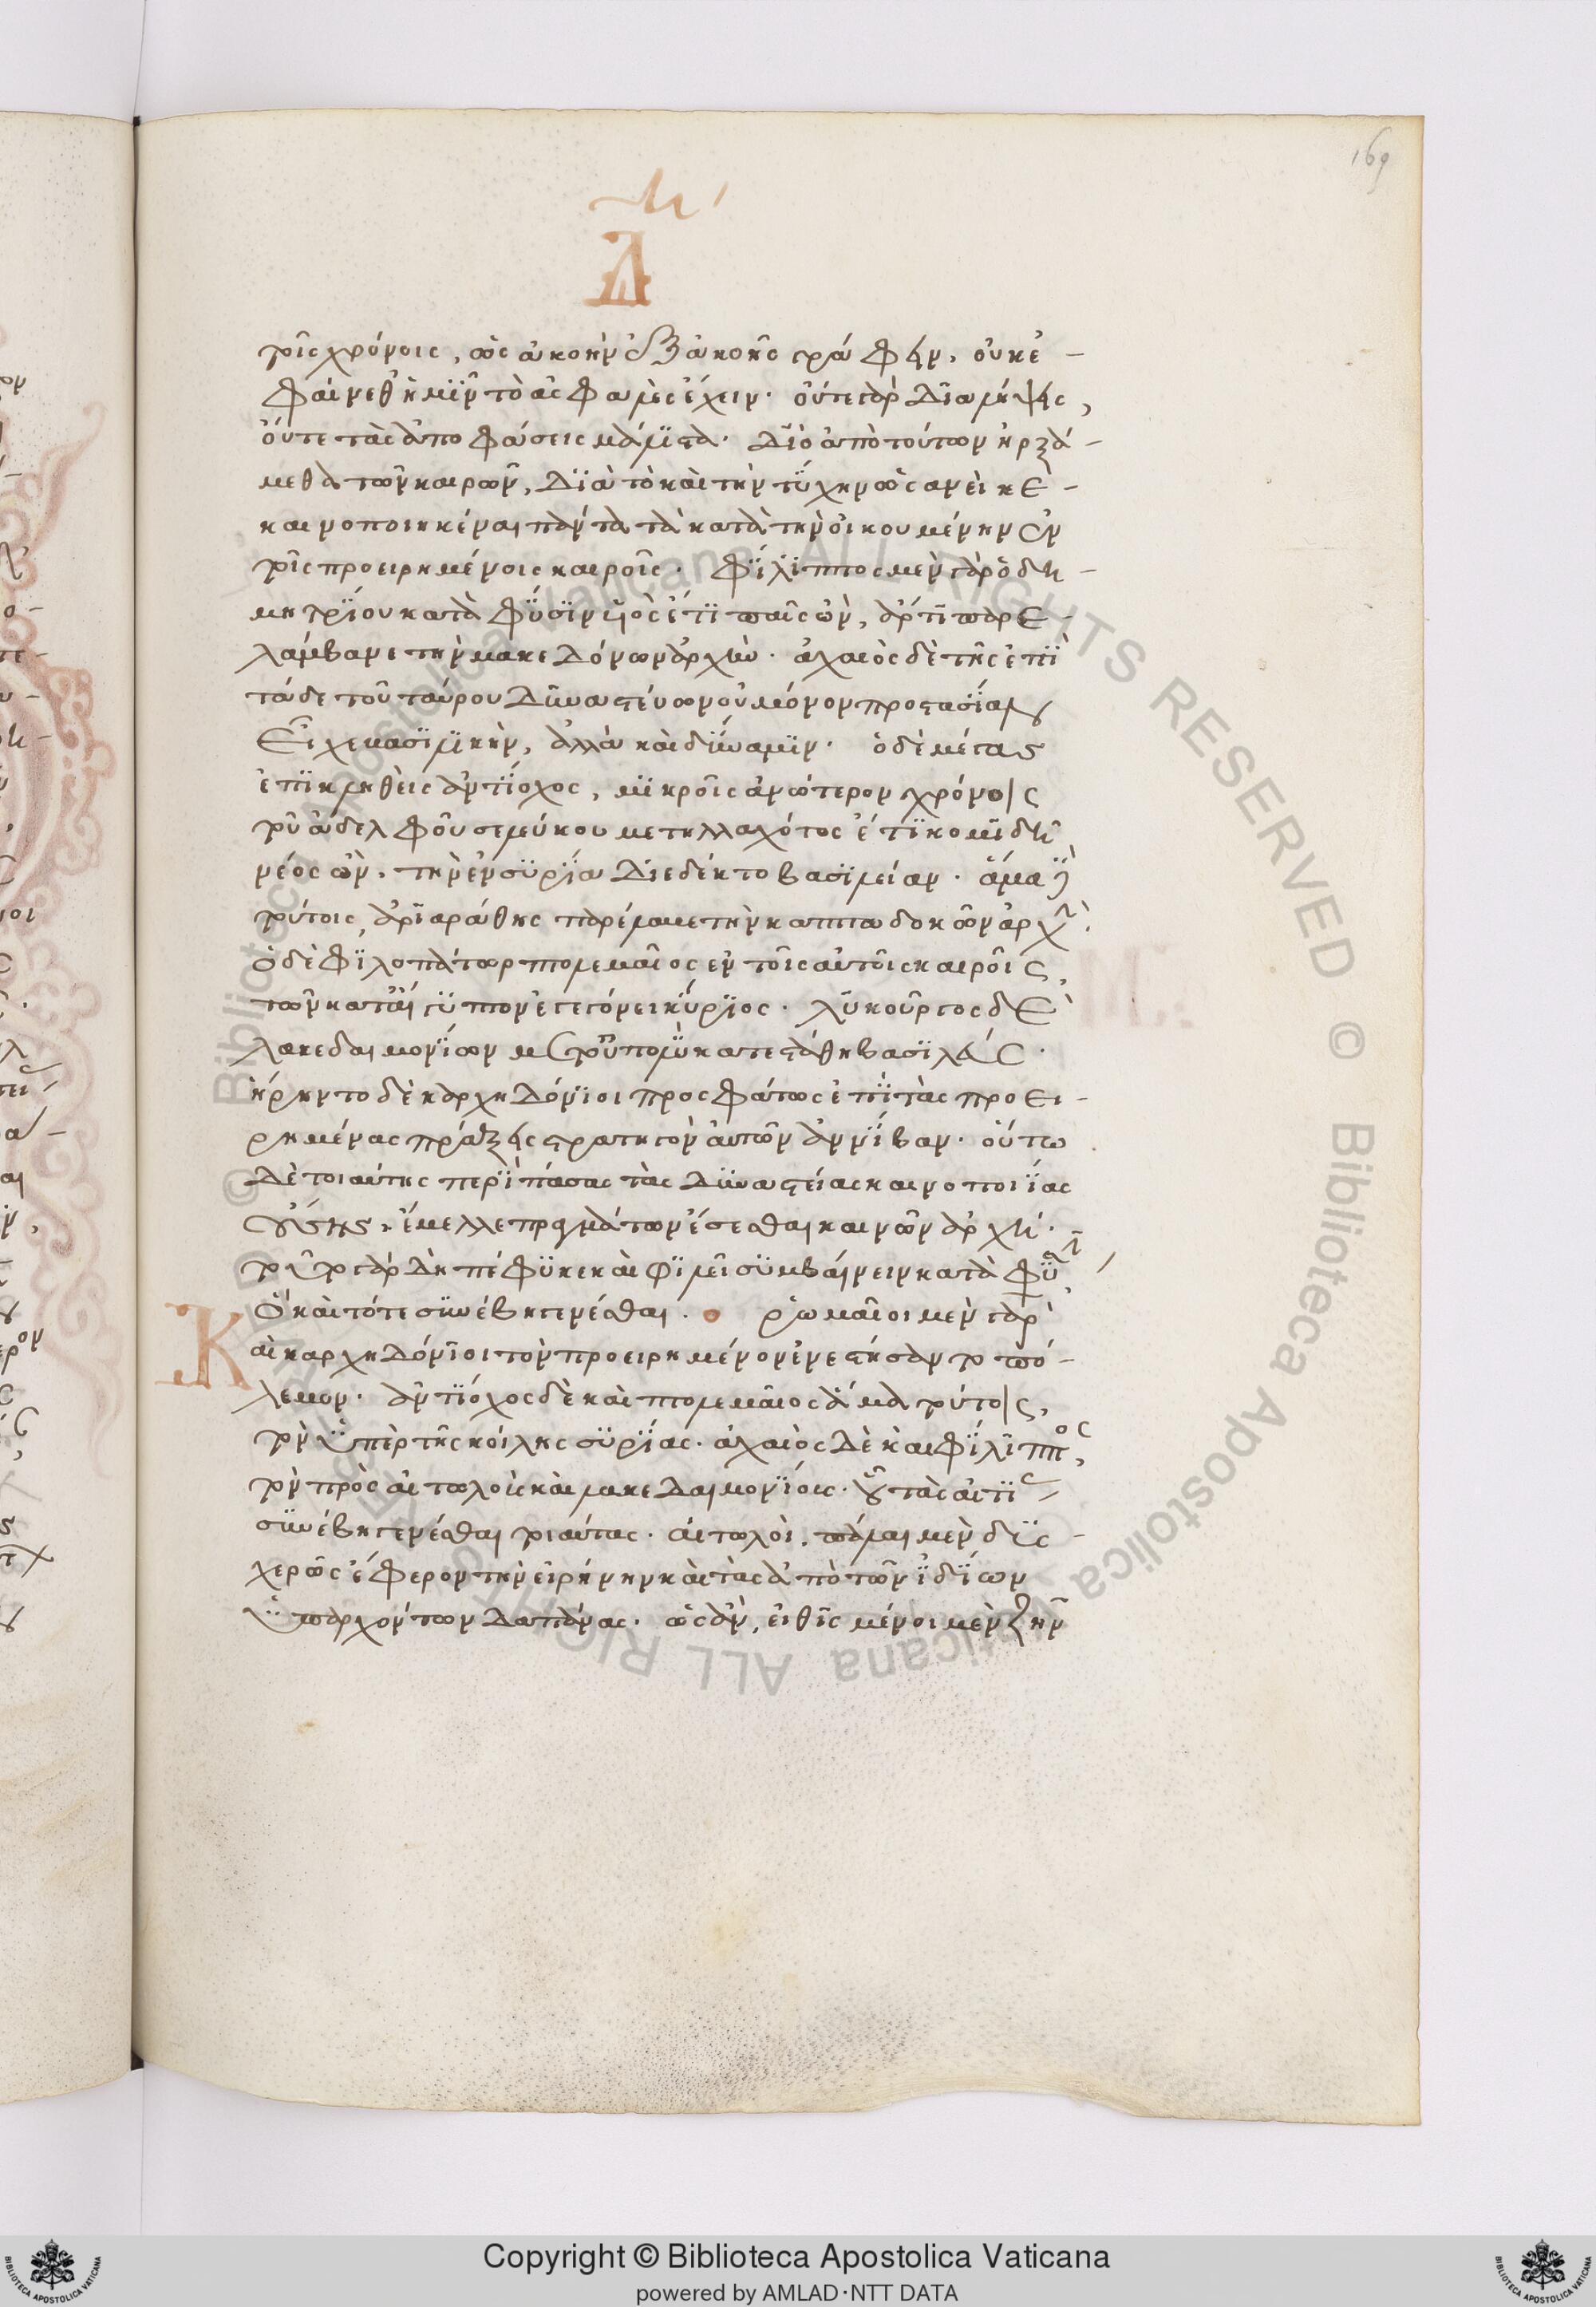 169
Δ
τοῖς χρόνοις, ὡς ἀκοὴν ἐξ ἀκοῆς γράφειν, οὐκ ἐ-
φαίνεθ' ἡμῖν τὸ ἀσφαλὲς ἔχειν· οὔτε γὰρ διαλήψεις,
οὔτε τὰς ἀποφάσεις μάλιστα· διὸ ἀπὸ τούτων ἠρξά-
μεθα τῶν καιρῶν, διὰ τὸ καὶ τὴν τύχην ὡς ἀνεὶ κε-
καινοποιηκέναι πάντα τὰ κατὰ τὴν οἰκουμένην ἐν
τοῖς προειρημένοις καιροῖς· φίλιππος μὲν γὰρ ὁ δη-
μητρίου κατὰ φύσιν υἱὸς ἔτι παῖς ὢν, ἄρτι παρε-
λάμβανε τὴν μακεδόνων ἀρχήν· ἀχαιὸς δὲ τῆς ἐπὶ
τάδε τοῦ ταύρου δυναστεύων οὐ μόνον προστασίαν
εἶχε βασιλικὴν, ἀλλὰ καὶ δύναμιν· ὁ δὲ μέγας
ἐπικληθεὶς ἀντίοχος, μικροῖς ἀνώτερον χρόνοις
τοῦ ἀδελφοῦ σελεύκου μετηλλαχότος ἔτι κομιδῆ
νέος ὢν, τὴν ἐν συρία διεδέκτο βασιλείαν· ἅμα δὲ
τούτοις, ἀριαράθης παρέλαβε τὴν καππαδοκῶν ἀρχὴν·
ὁ δὲ φιλοπάτωρ πτολεμαῖος ἐν τοῖς αὐτοῖς καιροῖς,
τῶν κατ' αἴγυπτον ἐγεγόνει κύριος· λυκοῦργος δὲ
λακεδαιμονίων μετ' οὐ πολὺ κατεστάθη βασιλεύς·
ᾕρηντο δὲ καρχηδόνιοι προσφάτως ἐπὶ τὰς προει-
ρημένας πράξεις στρατηγὸν αὐτῶν ἀννίβαν· οὕτω
δὲ τοιαύτης περὶ πάσας τὰς δυναστείας καινοποιίας
οὔσης, ἔμελλε πραγμάτων ἔσεσθαι καινῶν ἀρχή·
τοῦτο γὰρ δὴ πέφυκε καὶ φιλεῖ συμβαίνειν κατὰ φύσιν,
ὃ καὶ τότε συνέβη γενέσθαι. ῥωμαῖοι μὲν γὰρ
Καὶ καρχηδόνιοι τὸν προειρημένον ἐνεστήσαντο πό-
λεμον· ἀντίοχος δὲ καὶ πτολεμαῖος ἅμα τούτοις,
τὸν ὑπὲρ τῆς κοίλης συρίας· ἀχαιὸς δὲ καὶ φίλιππος,
τὸν πρὸς αἰτωλοὺς καὶ λακεδαιμονίους· οὗ τὰς αἰτίας
συνέβη γενέσθαι τοιαύτας· αἰτωλοὶ, πάλαι μὲν δυσ-
χερῶς ἔφερον τὴν εἰρήνην καὶ τὰς ἀπὸ τῶν ἰδίων
ὑπαρχόντων δαπάνας· ὡς ἂν, εἰθισμένοι μὲν ζῆν
© Biblioteca Apostolica Vaticana ALL RIGHTS RESERVED
Copyright © Biblioteca Apostolica Vaticana
powered by AMLAD·NTT DATA